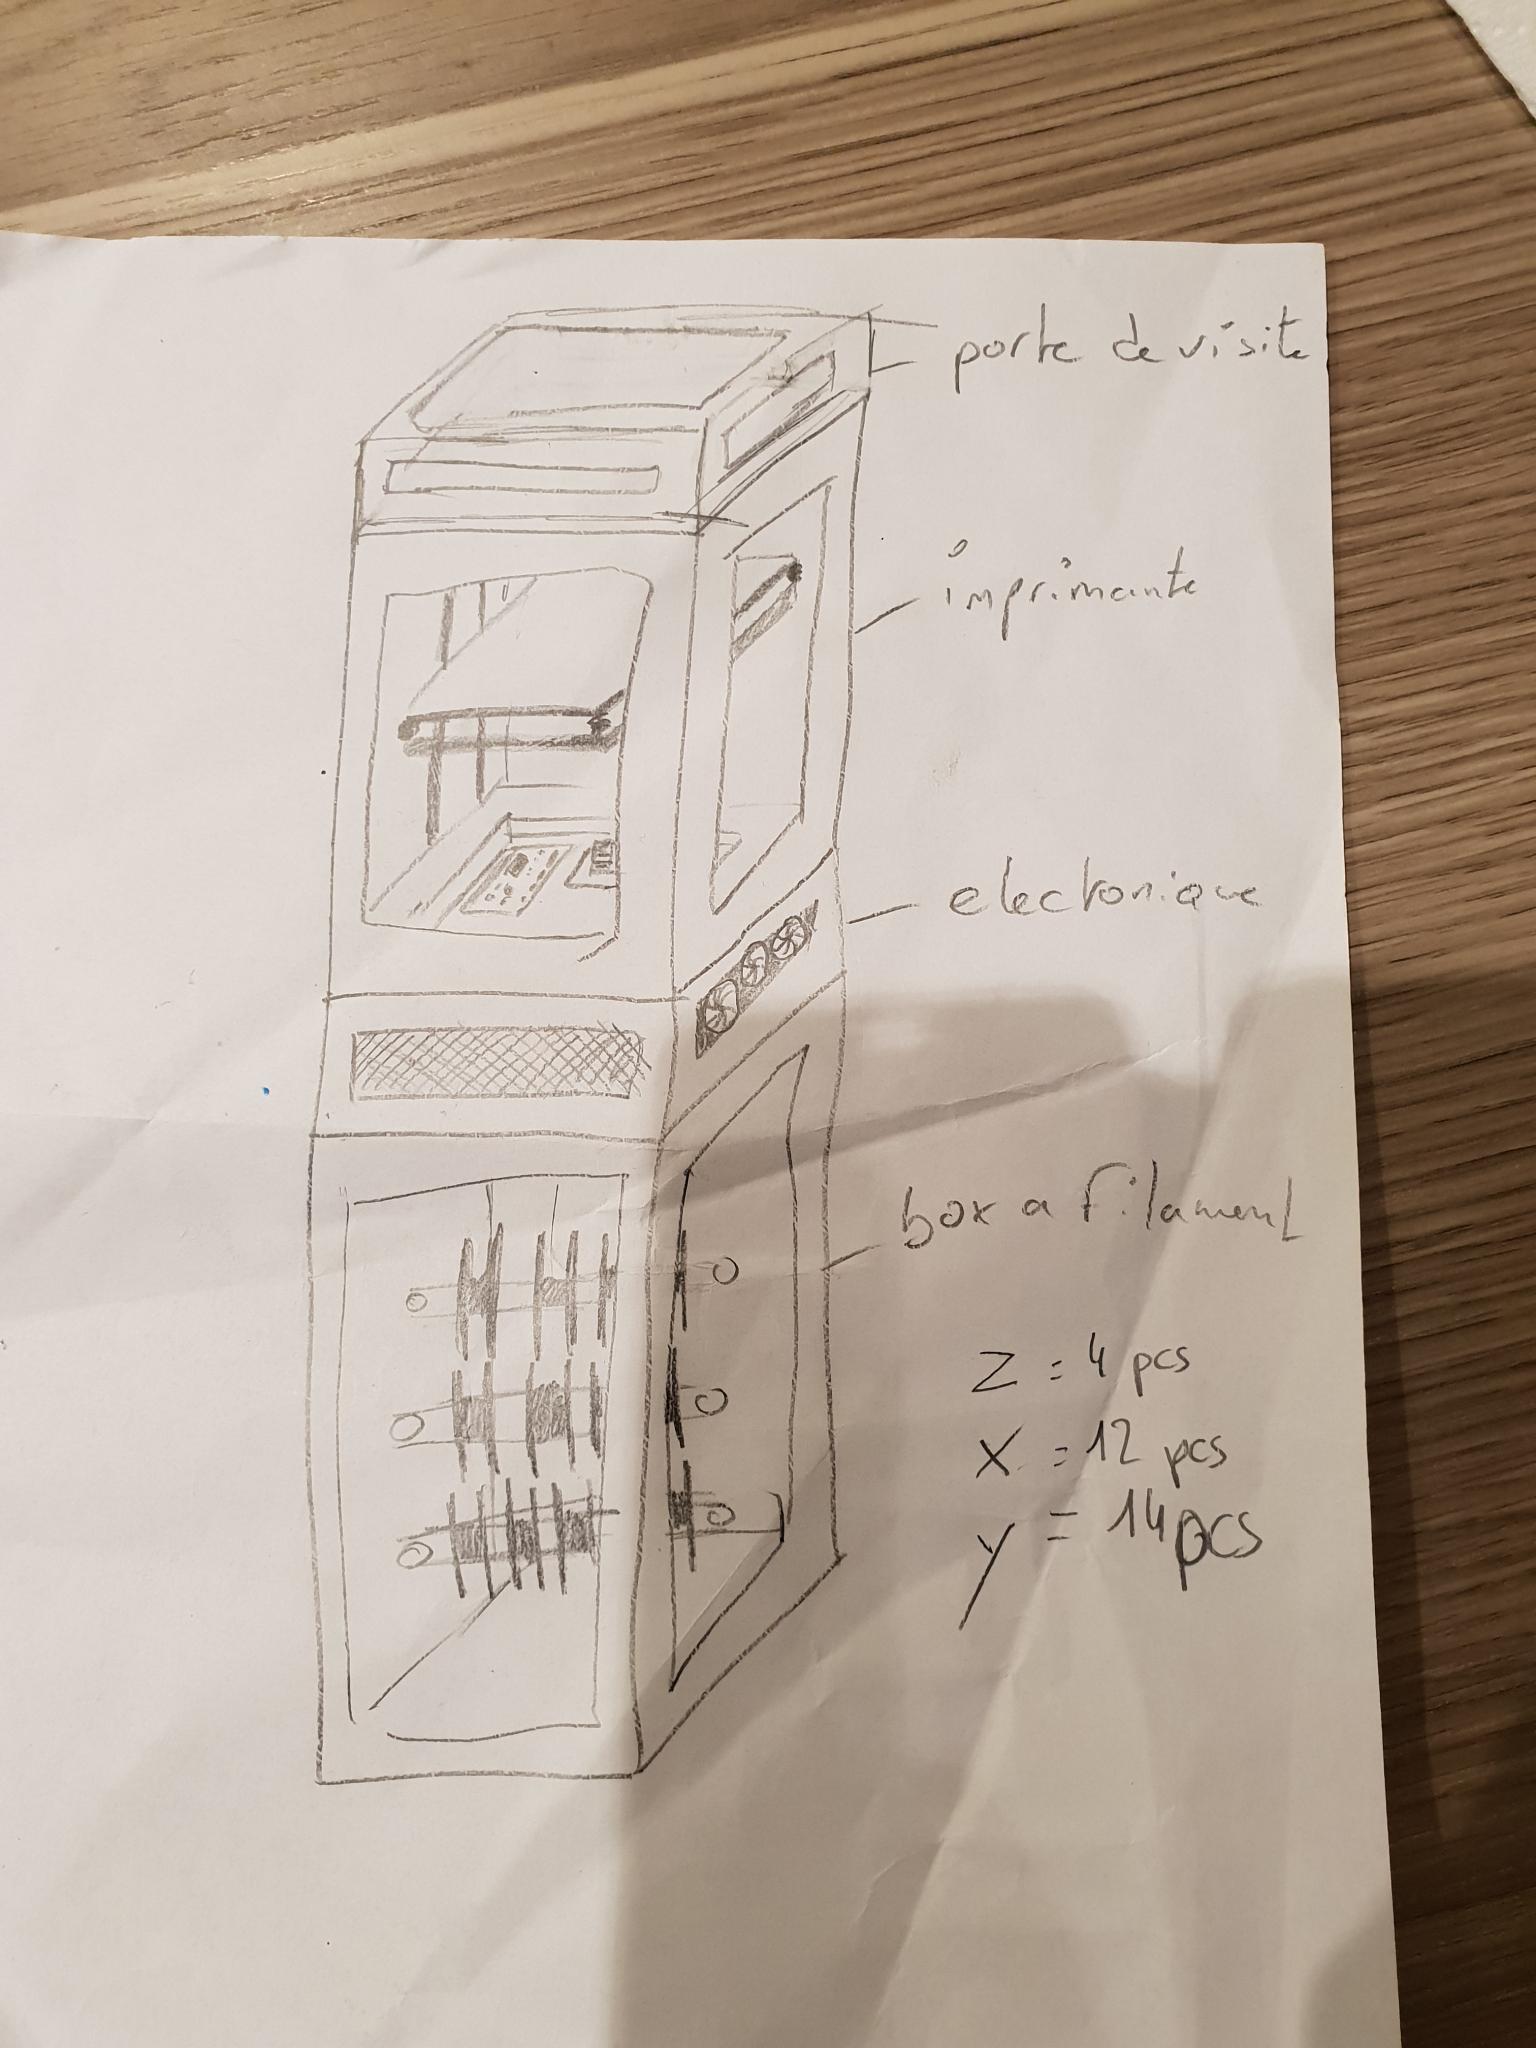 porte de visite
imprimante
electonique
box a filament
Z : 4 pcs
X : 12 pcs
y = 14 pcs